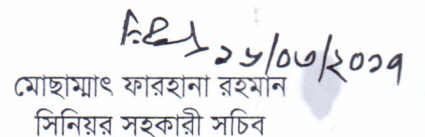 ২৮/০৩/২০১৭
মোছাম্মাৎ ফারহানা রহমান
সিনিয়র সহকারী সচিব